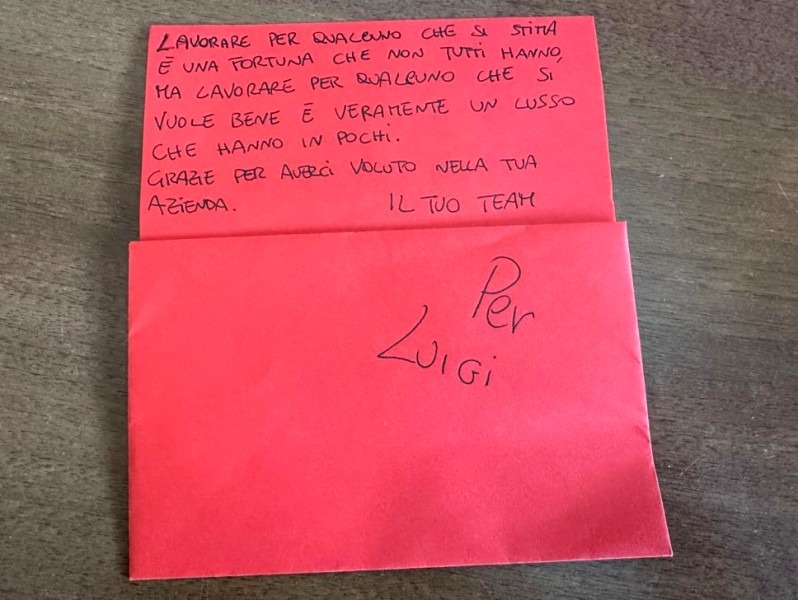 LAVORARE PER QUALCUNO CHE SI STIMA
È UNA FORTUNA CHE NON TUTTI HANNO,
MA LAVORARE PER QUALCUNO CHE SI
VUOLE BENE È VERAMENTE UN LUSSO
CHE HANNO IN POCHI.
GRAZIE PER AVERCI VOLUTO NELLA TUA
AZIENDA. IL TUO TEAM
Per
LUIGI